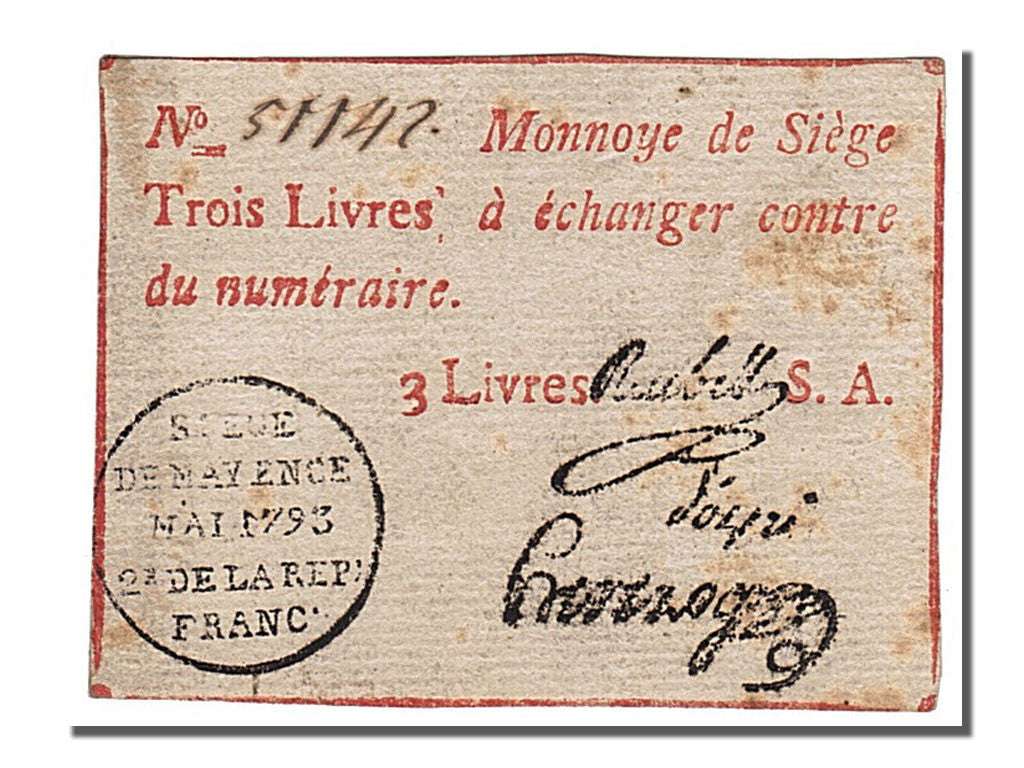 No 51142. Monnoye de Siège
Trois Livres, à échanger contre
du numéraire.
3 Livres Reubell S. A.
SIEGE
DE MAYENCE
MAI 1793
2E DE LA REP:
FRANC.